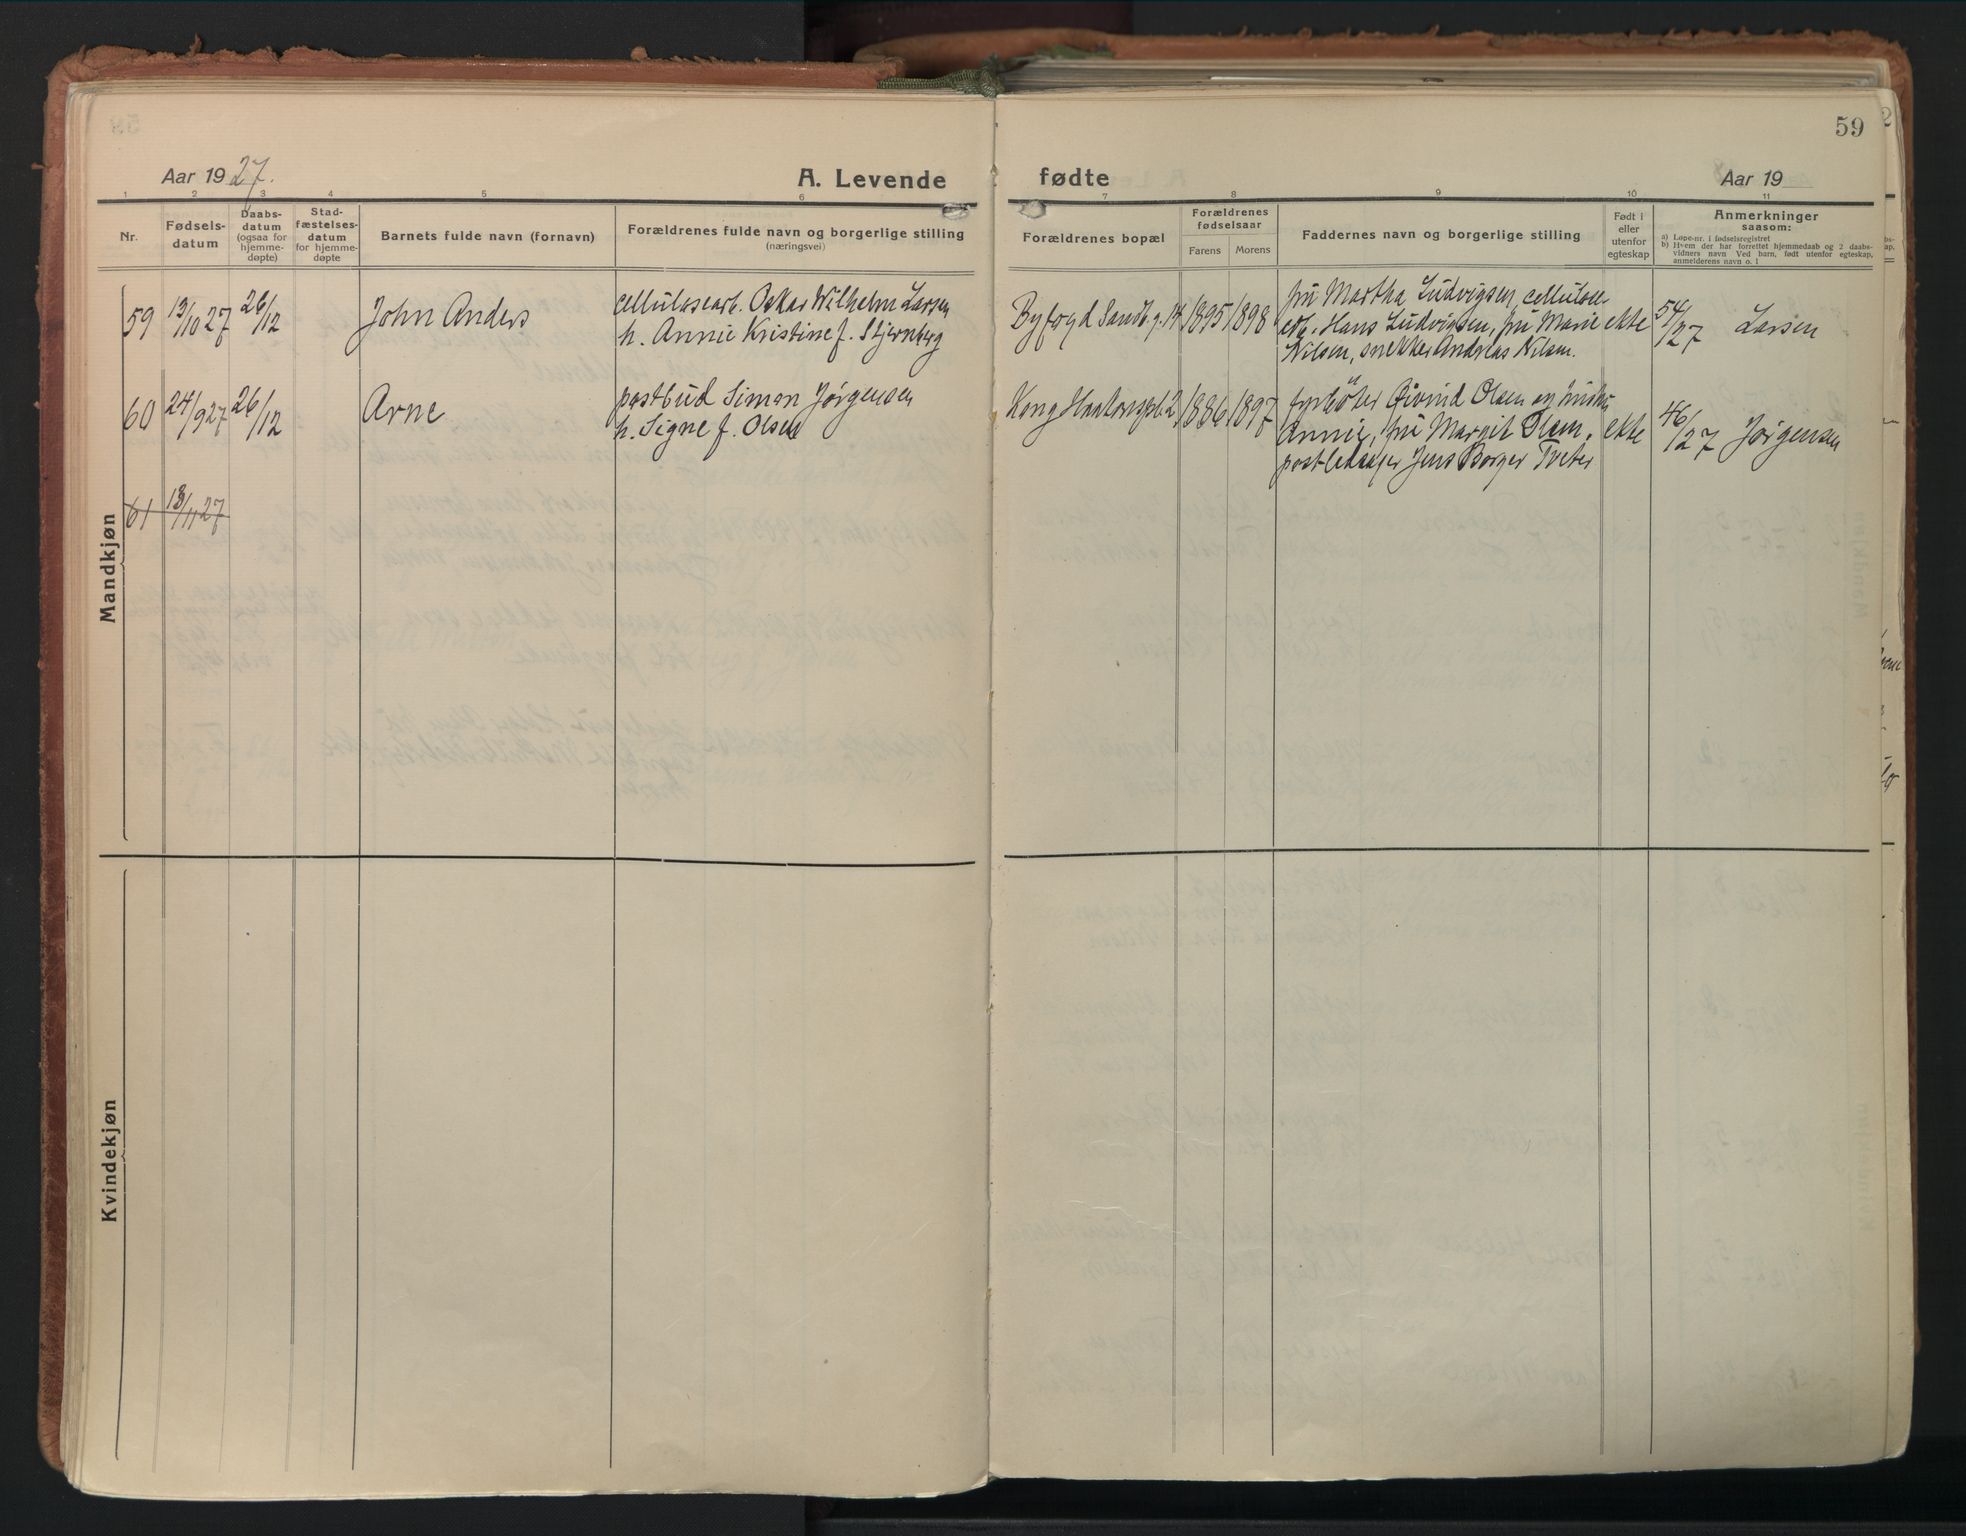 59
Aar 1927.
A. Levende fødte
Aar 19
1 2 3 4 5 6 7 8 9 10 11
Nr.
Fødsels-
datum
Daabs-
datum
(ogsaa for
hjemme-
døpte)
Stad-
fæstelses-
datum
for hjemme-
døpte
Barnets fulde navn (fornavn)
Forældrenes fulde navn og borgerlige stilling
(næringsvei)
Forældrenes bopæl
Forældrenes
fødselsaar
Farens Morens
Faddernes navn og borgerlige stilling
Født i
eller
utenfor
egteskap
Anmerkninger
saasom:
a) Løpe-nr. i fødselsregistret
b) Hvem der har forrettet hjemmedaab og 2 daabs-
vidners navn Ved barn, født utenfor egteskap,
anmelderens navn o. l
Mandkjøn
59 13/10 27 26/12 John Anders
cellulosearb. Oskar Wilhelm Larsen
h. Annie Kristine f. Stjernberg
Byfogd Sandb.g. 14 1895 1898
fru Martha Ludvigsen, cellulose-
arb. Hans Ludvigsen, fru Marie
Nilsen, snekker Andreas Nilsen.
ekte 54/27 Larsen
60 24/9 27 26/12 Arne
postbud Simon Jørgensen
h. Signe f. Olsen
Kong Haakonspl. 2 1886 1897
fyrbøter Øivind Olsen og hustru
Annie, fru Margit Olsen,
Jens Borger Tveter
ekte 46/27 Jørgensen
61 13/11 27
Kvindekjøn